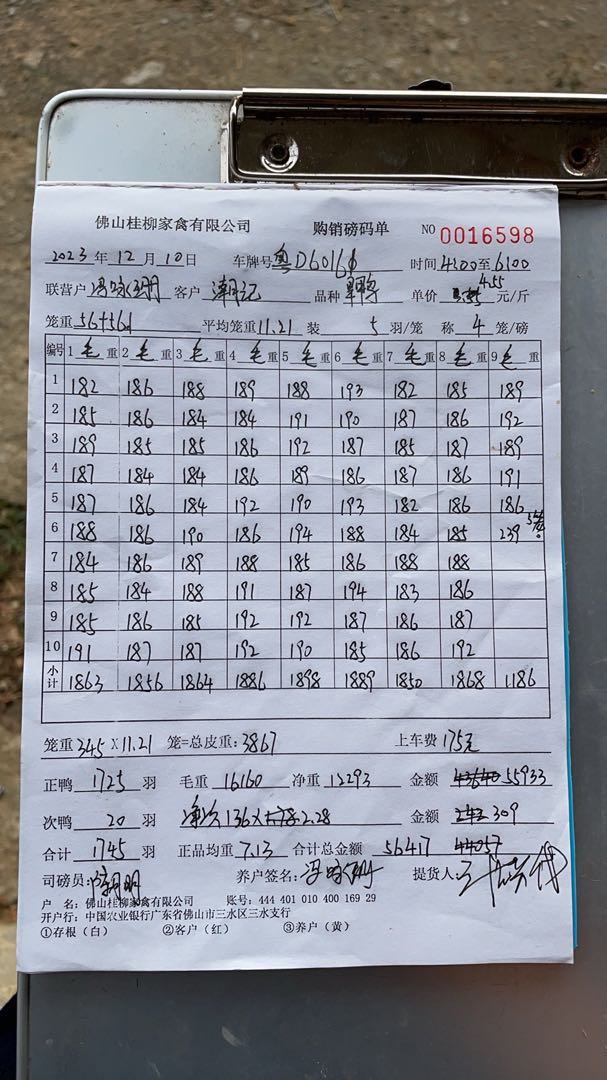 佛山桂柳家禽有限公司 购销磅码单 NO 0016598
2023年12月10日 车牌号 粤D60168 时间 4:00至6:00
联营户 客户 潮记 品种 单价 4.55 元/斤
笼重 56+56 平均笼重 11.21 装 5 羽/笼 称 4 笼/磅
编号 1毛重 2毛重 3毛重 4毛重 5毛重 6毛重 7毛重 8毛重 9毛重
1 182 186 188 189 188 193 182 185 189
2 185 186 184 184 191 190 187 186 192
3 189 185 185 186 192 187 185 187 189
4 187 184 184 186 189 186 187 186 191
5 187 186 184 192 190 193 182 186 186
6 188 186 190 186 194 188 184 185 239 5笼
7 184 186 189 188 185 186 188 188
8 185 184 188 191 187 194 183 186
9 185 186 185 192 192 187 186 187
10 191 187 187 192 190 185 186 192
小计 1863 1856 1864 1886 1898 1889 1850 1868 1186
笼重 345×11.21 笼=总皮重: 3867 上车费 175元
正鸭 1725 羽 毛重 16160 净重 12293 金额 43640 55933
次鸭 20 羽 净次136× 2.28 金额 309
合计 1745 羽 正品均重 7.13 合计总金额 56417 44057
司磅员: 养户签名: 提货人:
户 名: 佛山桂柳家禽有限公司 账号: 444 401 010 400 169 29
开户行: 中国农业银行广东省佛山市三水区三水支行
①存根（白） ②客户（红） ③养户（黄）